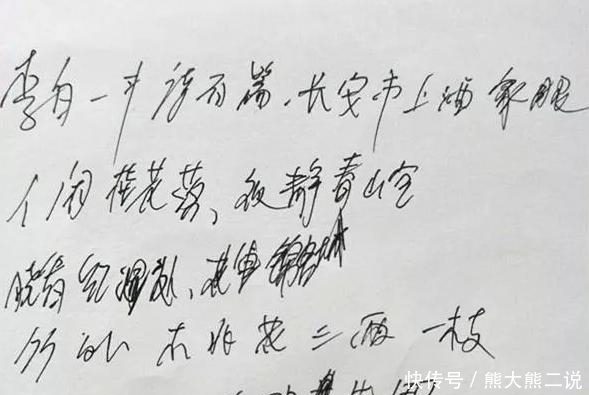 李白一斗诗百篇、长安市上酒家眠
人闲桂花落、夜静春山空
晓看红湿处、花重锦官城
竹外桃花三两一枝
快传号 / 熊大熊二说